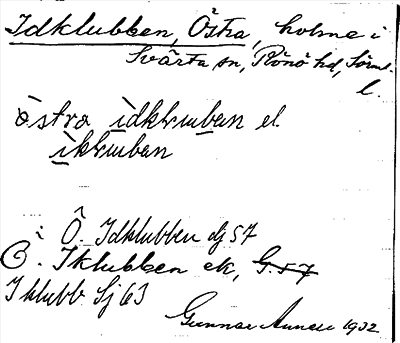 Idklubben, Östra, holme i
Svärta sn, Rönö hd, Sörml.
l.
östra idkkluban el.
ikkluban
i Ö. Idklubben dj 57
B. Iklubben ek, G. 57
Iklubb Sj 63
Gunnar 1932